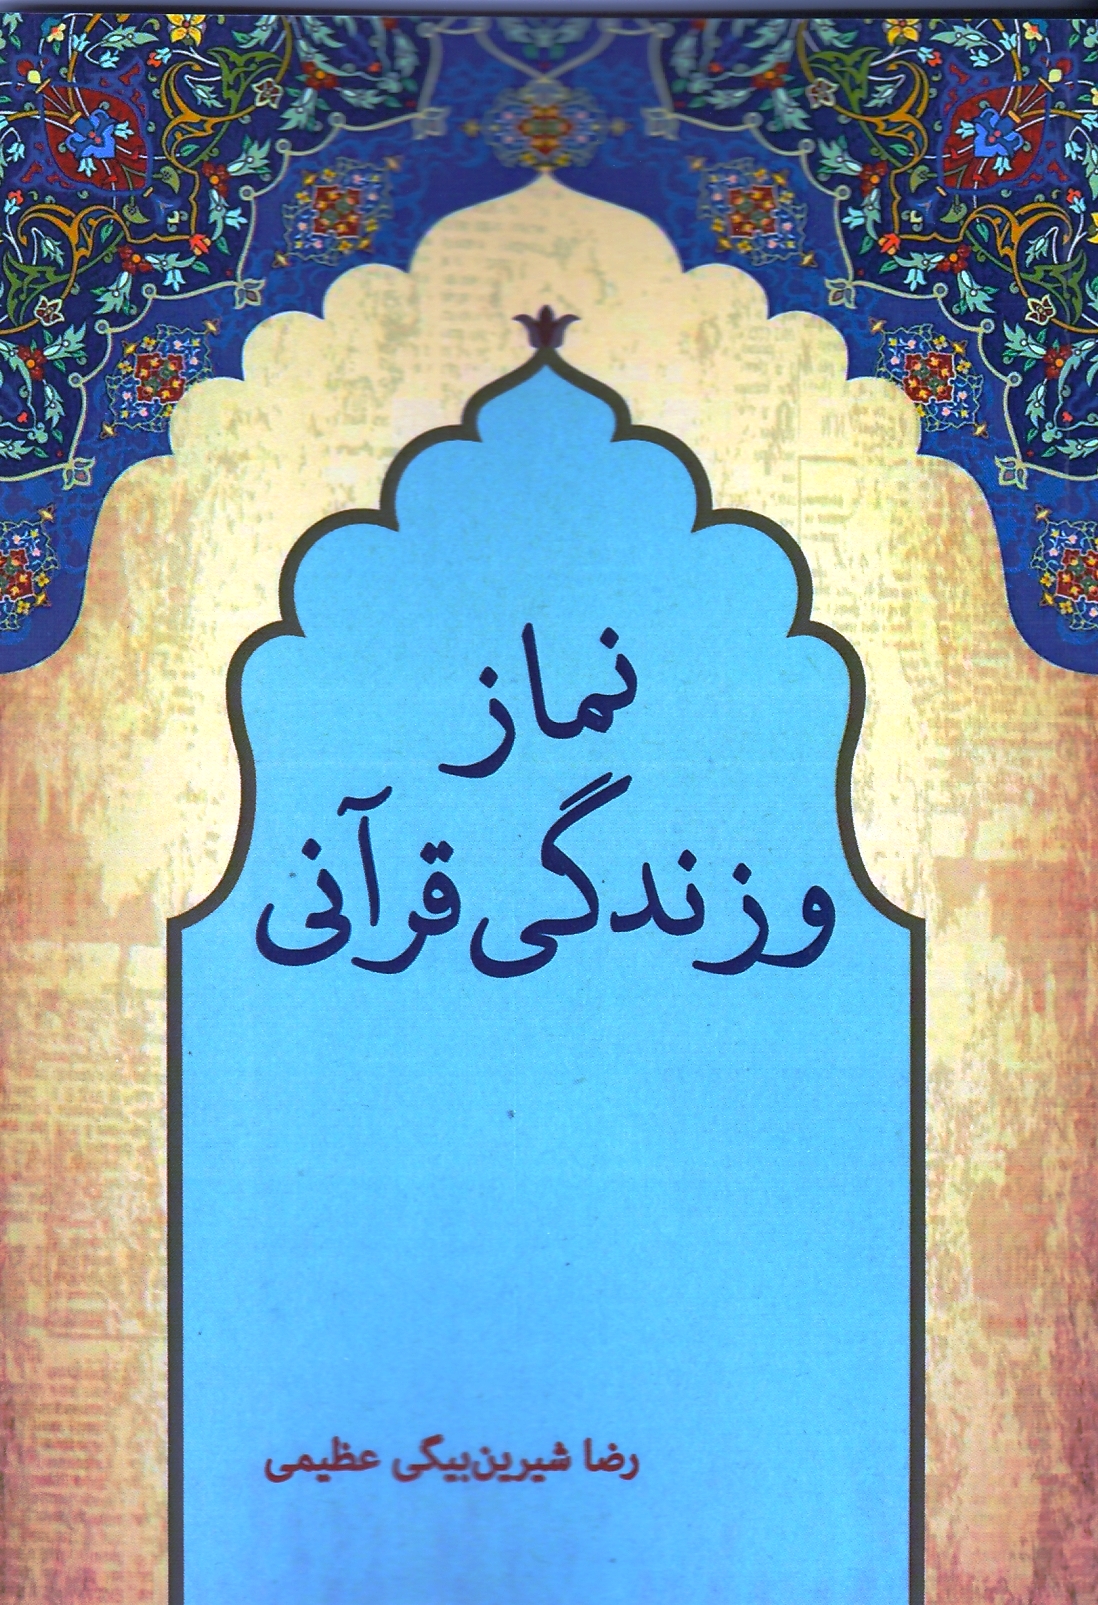 نماز
و زندگی قرآنی
رضا شیرین‌بیگی عظیمی